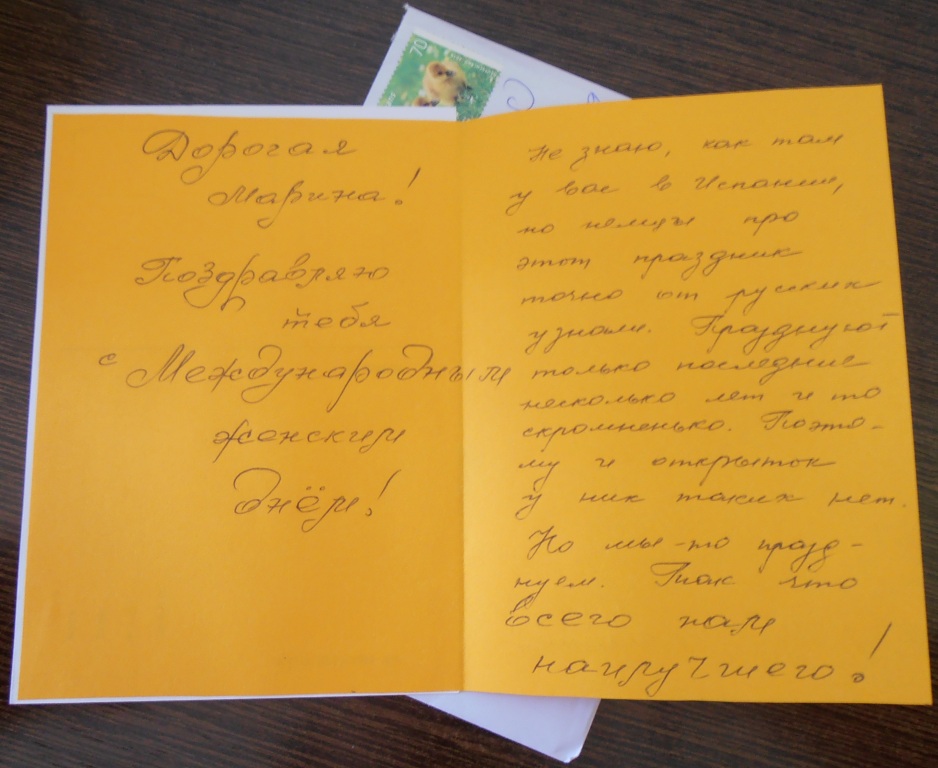 Дорогая
Марина!
Поздравляю
тебя
с Международным
женским
днём!
Не знаю, как там
у вас в Испании,
но немцы про
этот праздник
точно от русских
узнали. Празднуют
только последние
несколько лет и то
скромненько. Поэто-
му и открыток
у них таких нет.
Но мы-то празд-
нуем. Так что
всего нам
наилучшего!
70